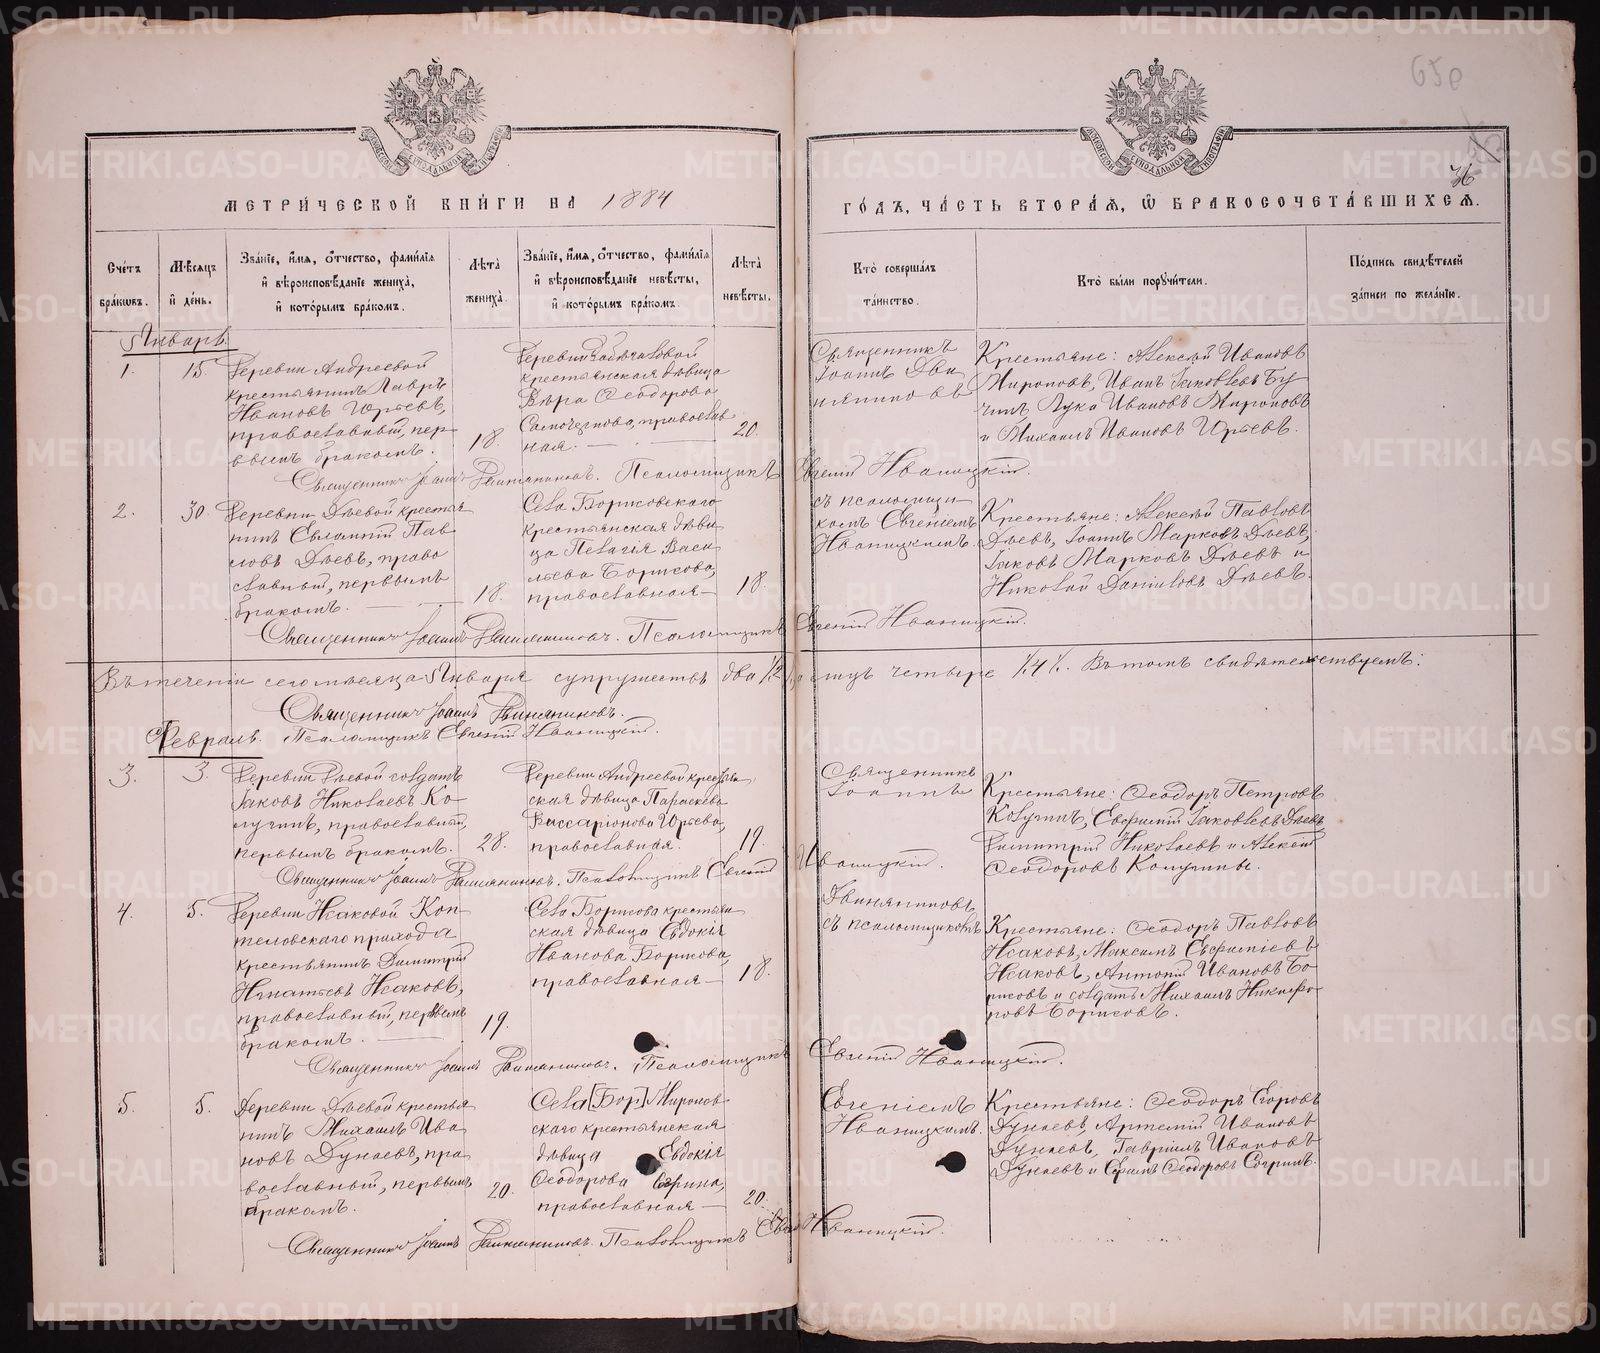 МЕТРИ́ЧЕСКОЙ КНИ́ГИ НА 1884
ГО́ДЪ, ЧА́СТЬ ВТОРА́Я, Ѡ БРАКОСОЧЕТА́ВШИХСЯ.
650
36
Сче́тъ бра́кѡвъ.
Мѣсяцъ и де́нь.
Зва́нїе, и́мя, о́тчество, фами́лїя
и вѣроисповѣ́данїе жениха̀,
и кото́рымъ бра́комъ.
Лѣ́та жениха̀.
Зва́нїе, и́мя, о́тчество, фами́лїя
и вѣроисповѣ́данїе невѣ́сты,
и кото́рымъ бра́комъ.
Лѣ́та невѣ́сты.
Кто̀ соверша́лъ та́инство.
Кто̀ бы́ли поручи́тели.
По́дпись свидѣ́телей
за́писи по жела́нїю.
Январь.
1.
15.
Деревни Андреевой
крестьянинъ Лавръ
Ивановъ Юрьевъ,
православный, пер-
вымъ бракомъ.
18.
Деревни
крестьянская дѣвица
Вѣра Ѳеодорова
православ
ная.
20.
Священникъ
Іоаннъ Дви
няниновъ
Крестьяне: Алексѣй Ивановъ
Мироновъ, Иванъ Іаковлевъ Бу
Лука Ивановъ Мироновъ
и Михаилъ Ивановъ Юрьевъ.
Священникъ Іоаннъ Двиняниновъ. Псаломщикъ Евгеній Иваницкій.
2.
30.
Деревни Дѣевой крестья
нинъ Евлампій Пав-
ловъ Дѣевъ, право
славный, первымъ
бракомъ.
18.
Села Борисовскаго
крестьянская дѣви
ца Пелагія Васи
льева Борисова,
православная
18.
съ псаломщи
комъ Евгеніемъ
Иваницкимъ.
Крестьяне: Алексѣй Павловъ
Дѣевъ, Іоаннъ Марковъ Дѣевъ,
Іаковъ Марковъ Дѣевъ и
Николай Даніиловъ Дѣевъ.
Священникъ Іоаннъ Двиняниновъ. Псаломщикъ Евгеній Иваницкій.
Въ теченіи сего мѣсяца Января супружествъ два /2/, лицъ четыре /4/. Въ томъ свидѣтельствуемъ:
Священникъ Іоаннъ Двиняниновъ.
Февраль.
Псаломщикъ Евгеній Иваницкій.
3.
3.
Деревни Дѣевой солдатъ
Іаковъ Николаевъ Ко-
лугинъ, православный,
первымъ бракомъ.
28.
Деревни Андреевой крестьян
ская дѣвица Параскева
Виссаріонова Юрьева,
православная.
19.
Священникъ
Іоаннъ
Крестьяне: Ѳеодоръ Петровъ
Колугинъ, Евфимій Іаковлевъ Дѣевъ
Димитрій Николаевъ и Алексѣй
Ѳеодоровъ Колугины.
Священникъ Іоаннъ Двиняниновъ. Псаломщикъ Евгеній Иваницкій.
4.
5.
Деревни Исаковой Коп-
теловскаго прихода
крестьянинъ Димитрій
Игнатьевъ Исаковъ,
православный, первымъ
бракомъ.
19.
Села Борисова крестьян
ская дѣвица Евдокія
Иванова Борисова,
православная
18.
Двиняниновъ
съ псаломщикомъ
Крестьяне: Ѳеодоръ Павловъ
Исаковъ, Максимъ Евфиміевъ
Исаковъ, Антоній Ивановъ Бо
рисовъ и солдатъ Михаилъ Никифо
ровъ Борисовъ.
Священникъ Іоаннъ Двиняниновъ. Псаломщикъ Евгеній Иваницкій.
5.
5.
Деревни Дѣевой крестья
нинъ Михаилъ Ива
новъ Дунаевъ, пра
вославный, первымъ
бракомъ.
20.
Села [Бор] Миронов
скаго крестьянская
дѣвица Евдокія
Ѳеодорова Согрина,
православная
20.
Евгеніемъ
Иваницкимъ.
Крестьяне: Ѳеодоръ Егоровъ
Дунаевъ, Артемій Ивановъ
Дунаевъ, Гавріилъ Ивановъ
Дунаевъ и Ефимъ Ѳеодоровъ Согринъ.
Священникъ Іоаннъ Двиняниновъ. Псаломщикъ Евгеній Иваницкій.
METRIKI.GASO-URAL.RU